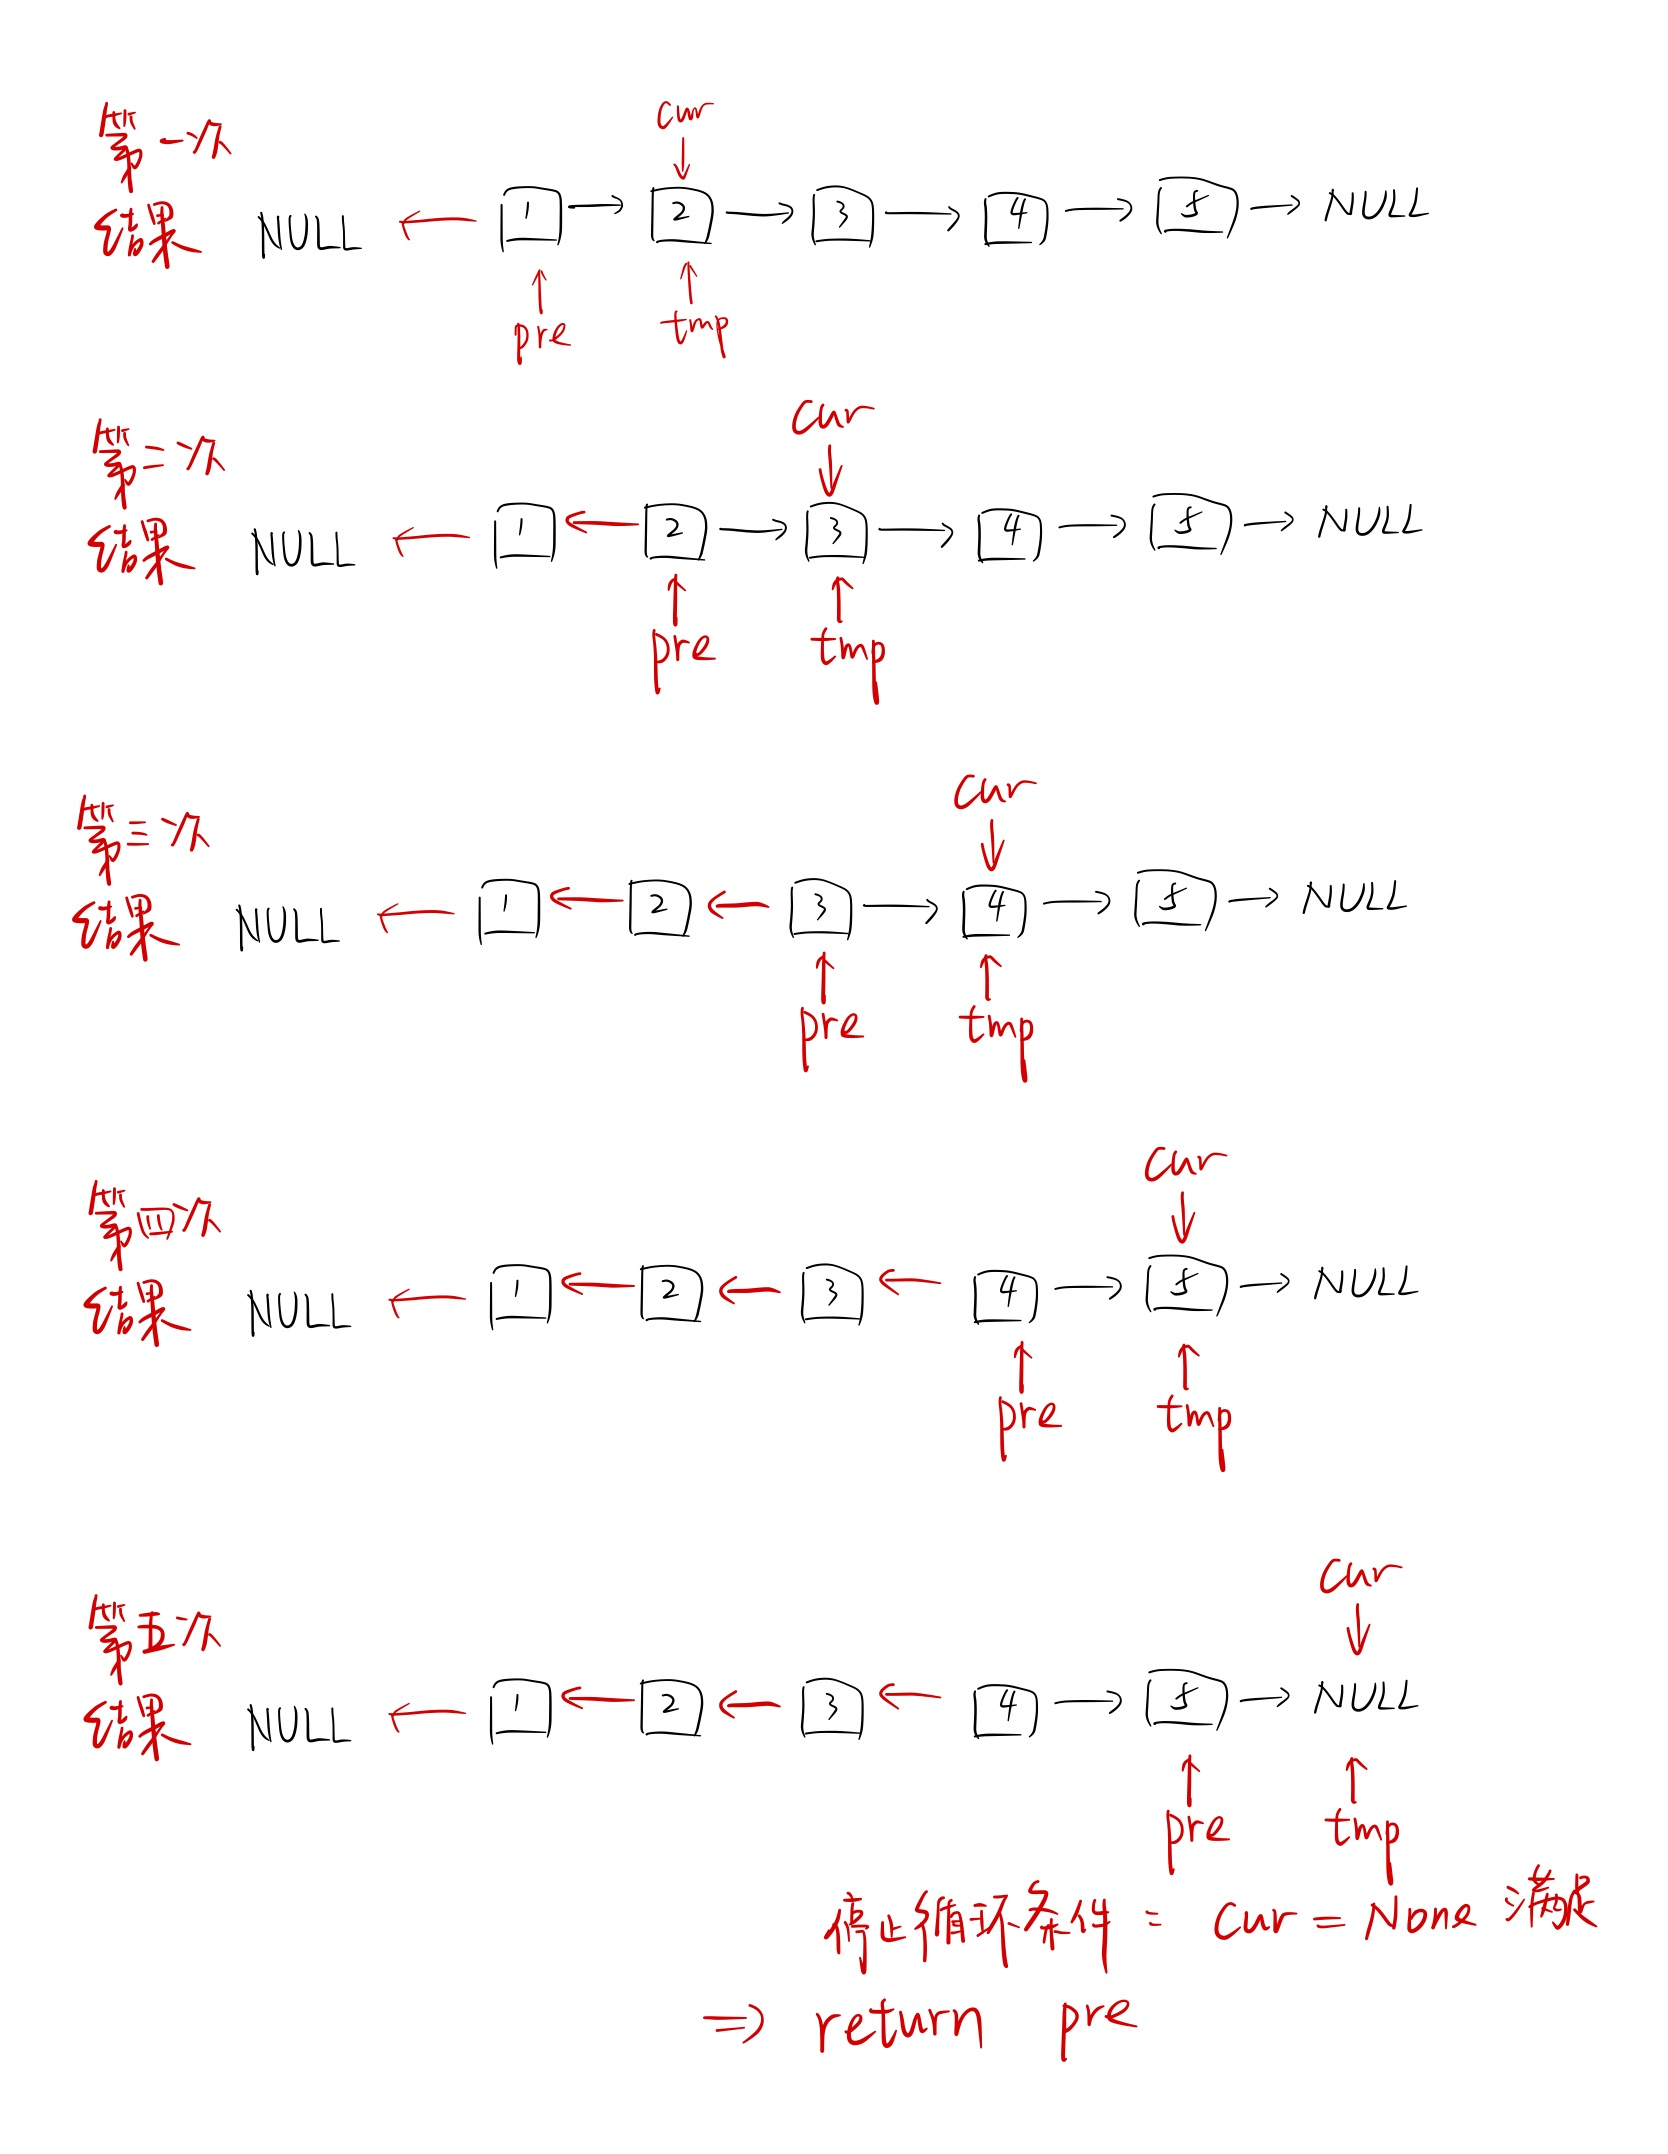 第一次
结果
cur
NULL ← 1 → 2 → 3 → 4 → 5 → NULL
pre tmp
第二次
结果
cur
NULL ← 1 ← 2 → 3 → 4 → 5 → NULL
pre tmp
第三次
结果
cur
NULL ← 1 ← 2 ← 3 → 4 → 5 → NULL
pre tmp
第四次
结果
cur
NULL ← 1 ← 2 ← 3 ← 4 → 5 → NULL
pre tmp
第五次
结果
cur
NULL ← 1 ← 2 ← 3 ← 4 → 5 → NULL
pre tmp
停止循环条件: cur = None 满足
⇒ return pre